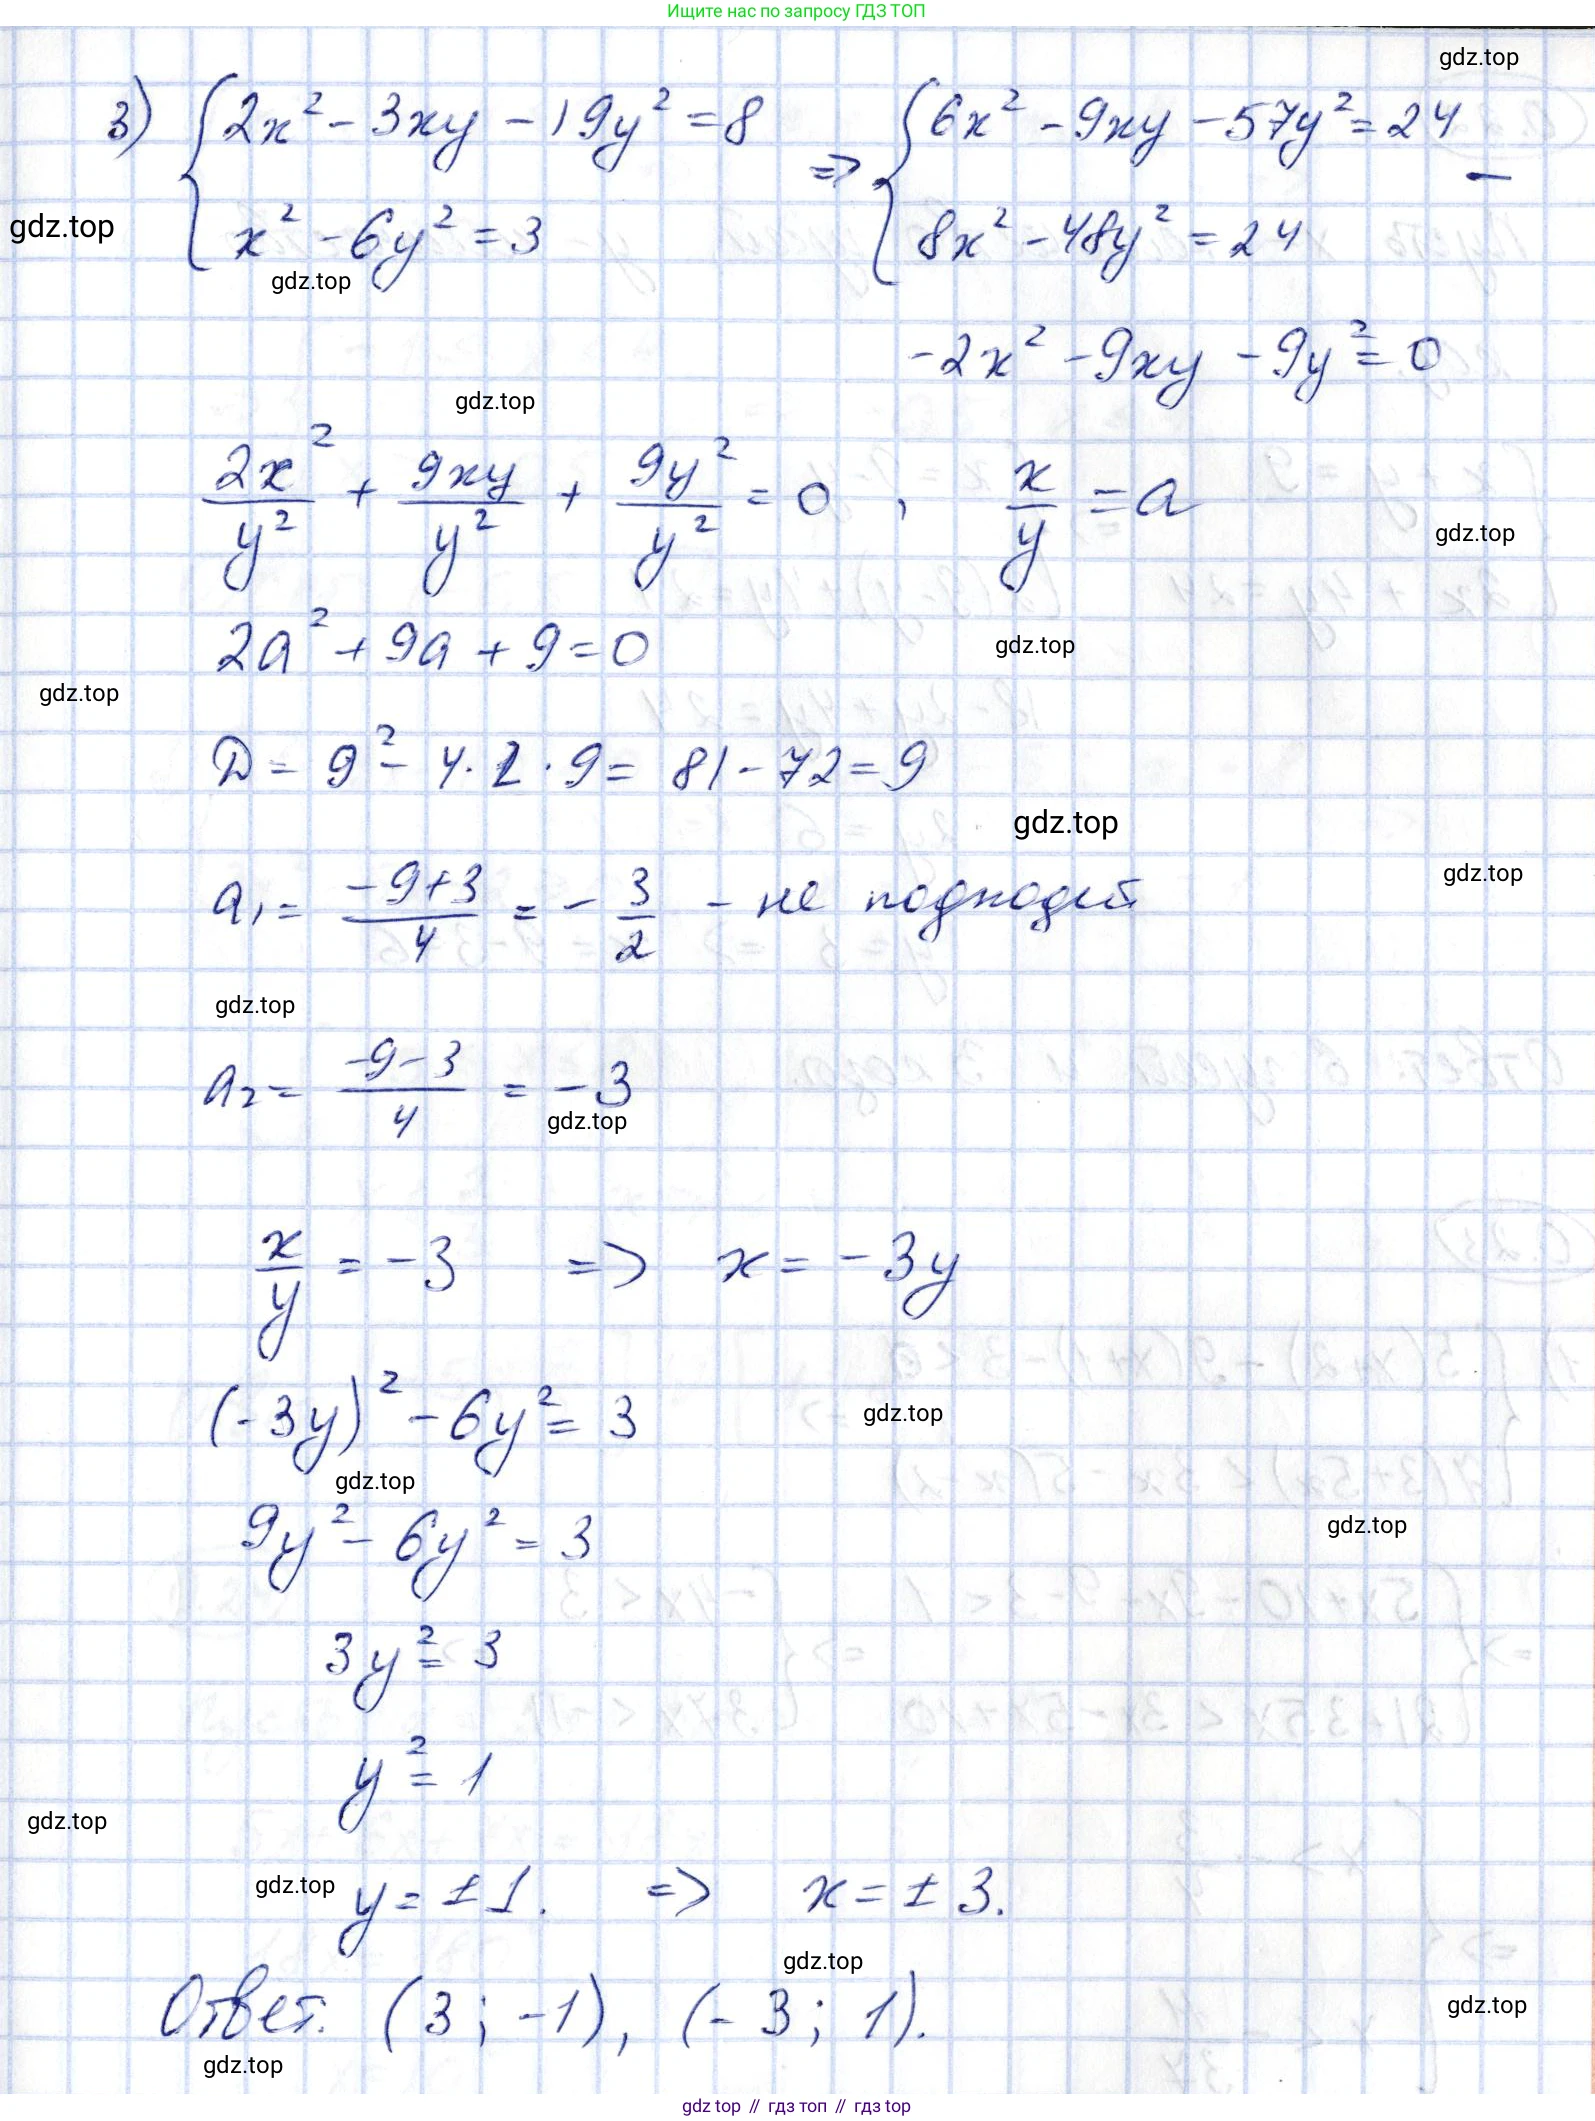 Ищите нас по запросу ГДЗ ТОП
gdz.top
3) { 2x² - 3xy - 19y² = 8 => { 6x² - 9xy - 57y² = 24 –
gdz.top
x² - 6y² = 3 8x² - 48y² = 24
gdz.top
-2x² - 9xy - 9y² = 0
gdz.top
2x²/y² + 9xy/y² + 9y²/y² = 0 , x/y = a
gdz.top
2a² + 9a + 9 = 0
gdz.top
gdz.top
D = 9² - 4·2·9 = 81 - 72 = 9
gdz.top
gdz.top
a₁ = (-9+3)/4 = - 3/2 - не подходит
gdz.top
a₂ = (-9-3)/4 = -3
gdz.top
x/y = -3 => x = -3y
(-3y)² - 6y² = 3
gdz.top
gdz.top
9y² - 6y² = 3
gdz.top
3y² = 3
y² = 1
gdz.top
gdz.top
y = ±1. => x = ±3.
gdz.top
Ответ: (3; -1), (-3; 1).
gdz.top
gdz.top
gdz.top // гдз топ // гдз top